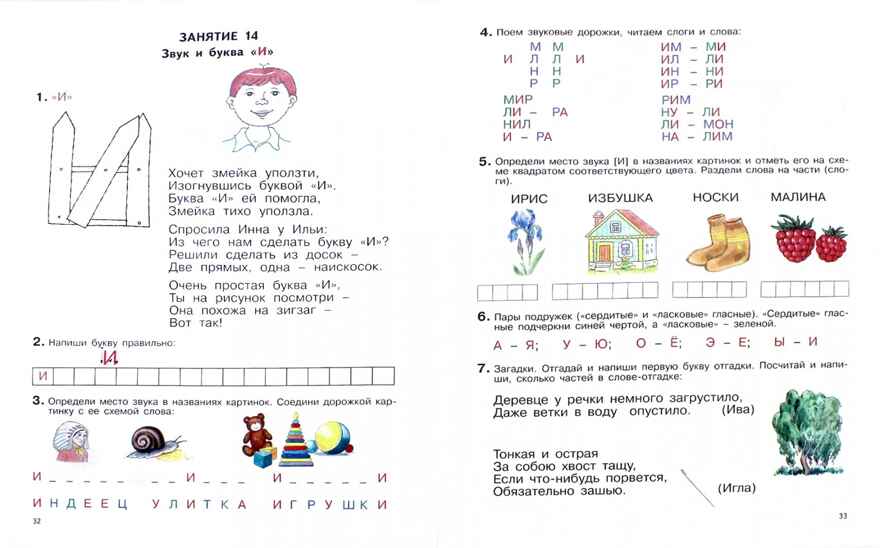 ЗАНЯТИЕ 14
Звук и буква «И»
1. «И»
Хочет змейка уползти,
Изогнувшись буквой «И».
Буква «И» ей помогла,
Змейка тихо уползла.
Спросила Инна у Ильи:
Из чего нам сделать букву «И»?
Решили сделать из досок –
Две прямых, одна – наискосок.
Очень простая буква «И»,
Ты на рисунок посмотри –
Она похожа на зигзаг –
Вот так!
2. Напиши букву правильно:
И
И
3. Определи место звука в названиях картинок. Соедини дорожкой кар-
тинку с ее схемой слова:
И _ _ _ _ _ _ _ _ И _ _ _ И _ _ _ _ _ И
ИНДЕЕЦ УЛИТКА ИГРУШКИ
32
4. Поем звуковые дорожки, читаем слоги и слова:
М М ИМ – МИ
И Л Л И ИЛ – ЛИ
Н Н ИН – НИ
Р Р ИР – РИ
МИР РИМ
ЛИ – РА НУ – ЛИ
НИЛ ЛИ – МОН
И – РА НА – ЛИМ
5. Определи место звука [И] в названиях картинок и отметь его на схе-
ме квадратом соответствующего цвета. Раздели слова на части (сло-
ги).
ИРИС ИЗБУШКА НОСКИ МАЛИНА
6. Пары подружек («сердитые» и «ласковые» гласные). «Сердитые» глас-
ные подчеркни синей чертой, а «ласковые» – зеленой.
А – Я; У – Ю; О – Ё; Э – Е; Ы – И
7. Загадки. Отгадай и напиши первую букву отгадки. Посчитай и напи-
ши, сколько частей в слове-отгадке:
Деревце у речки немного загрустило,
Даже ветки в воду опустило. (Ива)
Тонкая и острая
За собою хвост тащу,
Если что-нибудь порвется,
Обязательно зашью. (Игла)
33